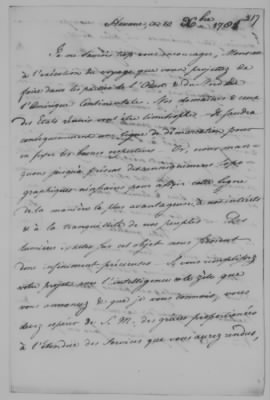 Havane, ce 22 Xbre 1784 217
Je ne saurais trop vous encourager, Monsieur
à l'exécution du voyage que vous projettez de
faire dans les parties de l'Ouest & du Nord de
l'Amérique Continentale. Nos domaines & ceux
des Etats Unis vont être limitrophes. Il faudra
conséquemment une ligne de démarcation pour
en fixer les bornes respectives. Or, nous man-
quons jusqu'à présent des renseignemens topo-
graphiques nécessaires pour établir cette ligne
de la manière la plus avantageuse à nos intérêts
& à la tranquilité de nos peuples. Des
lumières sur cet objet nous seroient
donc infiniment précieuses. Si vous remplissez
votre projet avec l'intelligence & le zèle que
vous annoncez & que je vous connois, vous
devez espérer de S. M. des graces proportionées
à l'étendue des Services que vous aurez rendus,